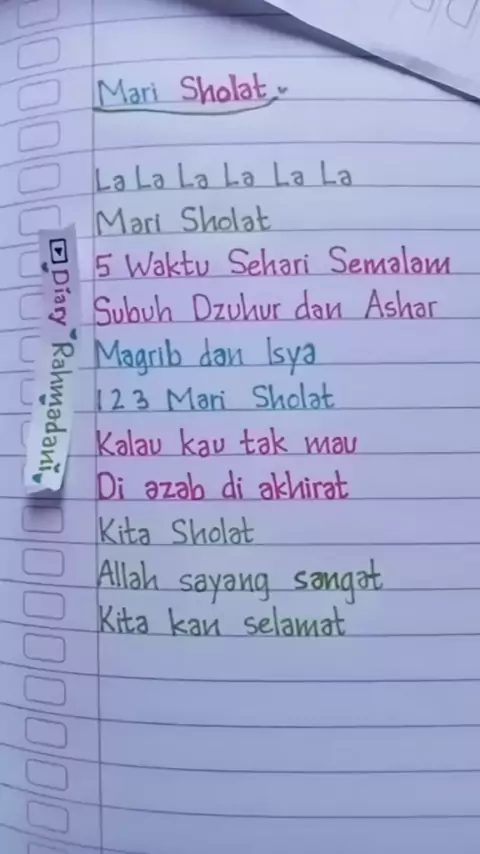 Mari Sholat
La La La La La La
Mari Sholat
5 Waktu Sehari Semalam
Subuh Dzuhur dan Ashar
Magrib dan Isya
1 2 3 Mari Sholat
Kalau kau tak mau
Di azab di akhirat
Kita Sholat
Allah sayang sangat
Kita kan selamat
Diary Rahmadani